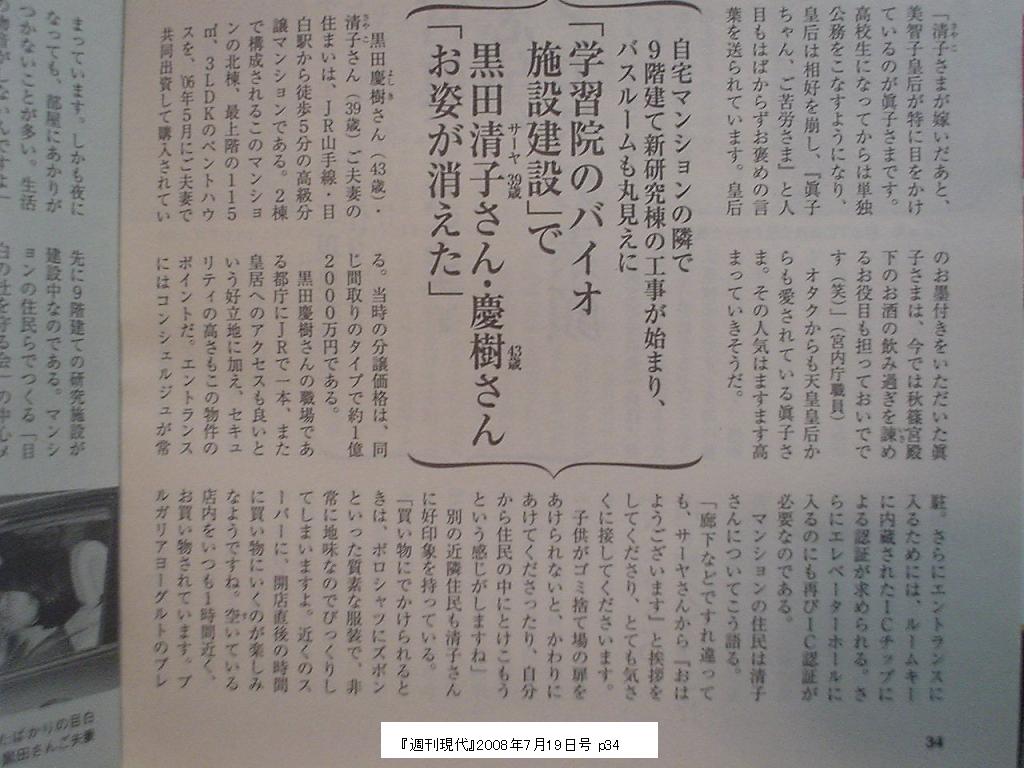 「清子さまが嫁いだあと、
美智子皇后が特に目をかけ
ているのが眞子さまです。
高校生になってからは単独
公務をこなすようになり、
皇后は相好を崩し、『眞子
ちゃん、ご苦労さま』と人
目もはばからずお褒めの言
葉を送られています。皇后
のお墨付きをいただいた眞
子さまは、今では秋篠宮殿
下のお酒の飲み過ぎを諌め
るお役目も担っておいでで
す（笑）」（宮内庁職員）
オタクからも天皇皇后か
らも愛されている眞子さ
ま。その人気はますます高
まっていきそうだ。
自宅マンションの隣で
9階建て新研究棟の工事が始まり、
バスルームも丸見えに
「学習院のバイオ
施設建設」で
黒田清子さん・慶樹さん
サーヤ 39歳
43歳
「お姿が消えた」
黒田慶樹さん（43歳）・
清子さん（39歳）ご夫妻の
住まいは、JR山手線・目
白駅から徒歩5分の高級分
譲マンションである。2棟
で構成されるこのマンショ
ンの北棟、最上階の115
㎡、3LDKのペントハウ
スを、'06年5月にご夫妻で
共同出資して購入されてい
る。当時の分譲価格は、同
じ間取りのタイプで約1億
2000万円である。
黒田慶樹さんの職場であ
る都庁にJRで一本、また
皇居へのアクセスも良いと
いう好立地に加え、セキュ
リティの高さもこの物件の
ポイントだ。エントランス
にはコンシェルジュが常
駐。さらにエントランスに
入るためには、ルームキー
に内蔵されたICチップに
よる認証が求められる。さ
らにエレベーターホールに
入るのにも再びIC認証が
必要なのである。
マンションの住民は清子
さんについてこう語る。
「廊下などですれ違って
も、サーヤさんから『おは
ようございます』と挨拶を
してくださり、とても気さ
くに接してくださいます。
子供がゴミ捨て場の扉を
あけられないと、かわりに
あけてくださったり、自分
から住民の中にとけこもう
という感じがしますね」
別の近隣住民も清子さん
に好印象を持っている。
「買い物にでかけられると
きは、ポロシャツにズボン
といった質素な服装で、非
常に地味なのでびっくりし
てしまいますよ。近くのス
ーパーに、開店直後の時間
に買い物にいくのが楽しみ
なようですね。空いている
店内をいつも1時間近く、
お買い物されています。ブ
ルガリアヨーグルトのプレ
まっています。しかも夜に
なっても、部屋にあかりが
つかないことが多い。生活
先に9階建ての研究施設が
建設中なのである。マンシ
ョンの住民らでつくる「目
白の杜を守る会」の中心メ
たばかりの目白
黒田さんご夫妻
34
『週刊現代』2008年7月19日号 p34